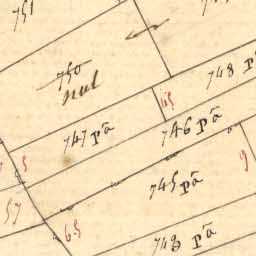 751
750
nul
748 pᵃ
65
747 pᵃ
746 pᵃ
5
9
745 pᵃ
57
65